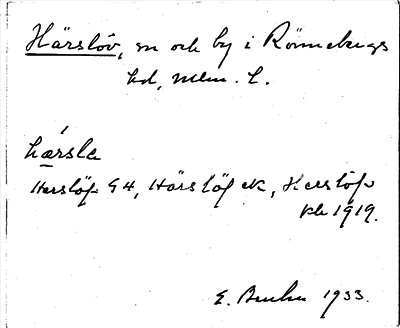 Härslöv, sn och by i Rönnebergs
hd, Mlm. l.
hærsle
Herslöf GH, Härslöf ek, Herslöf
kb 1919.
E. Bruhn 1933.